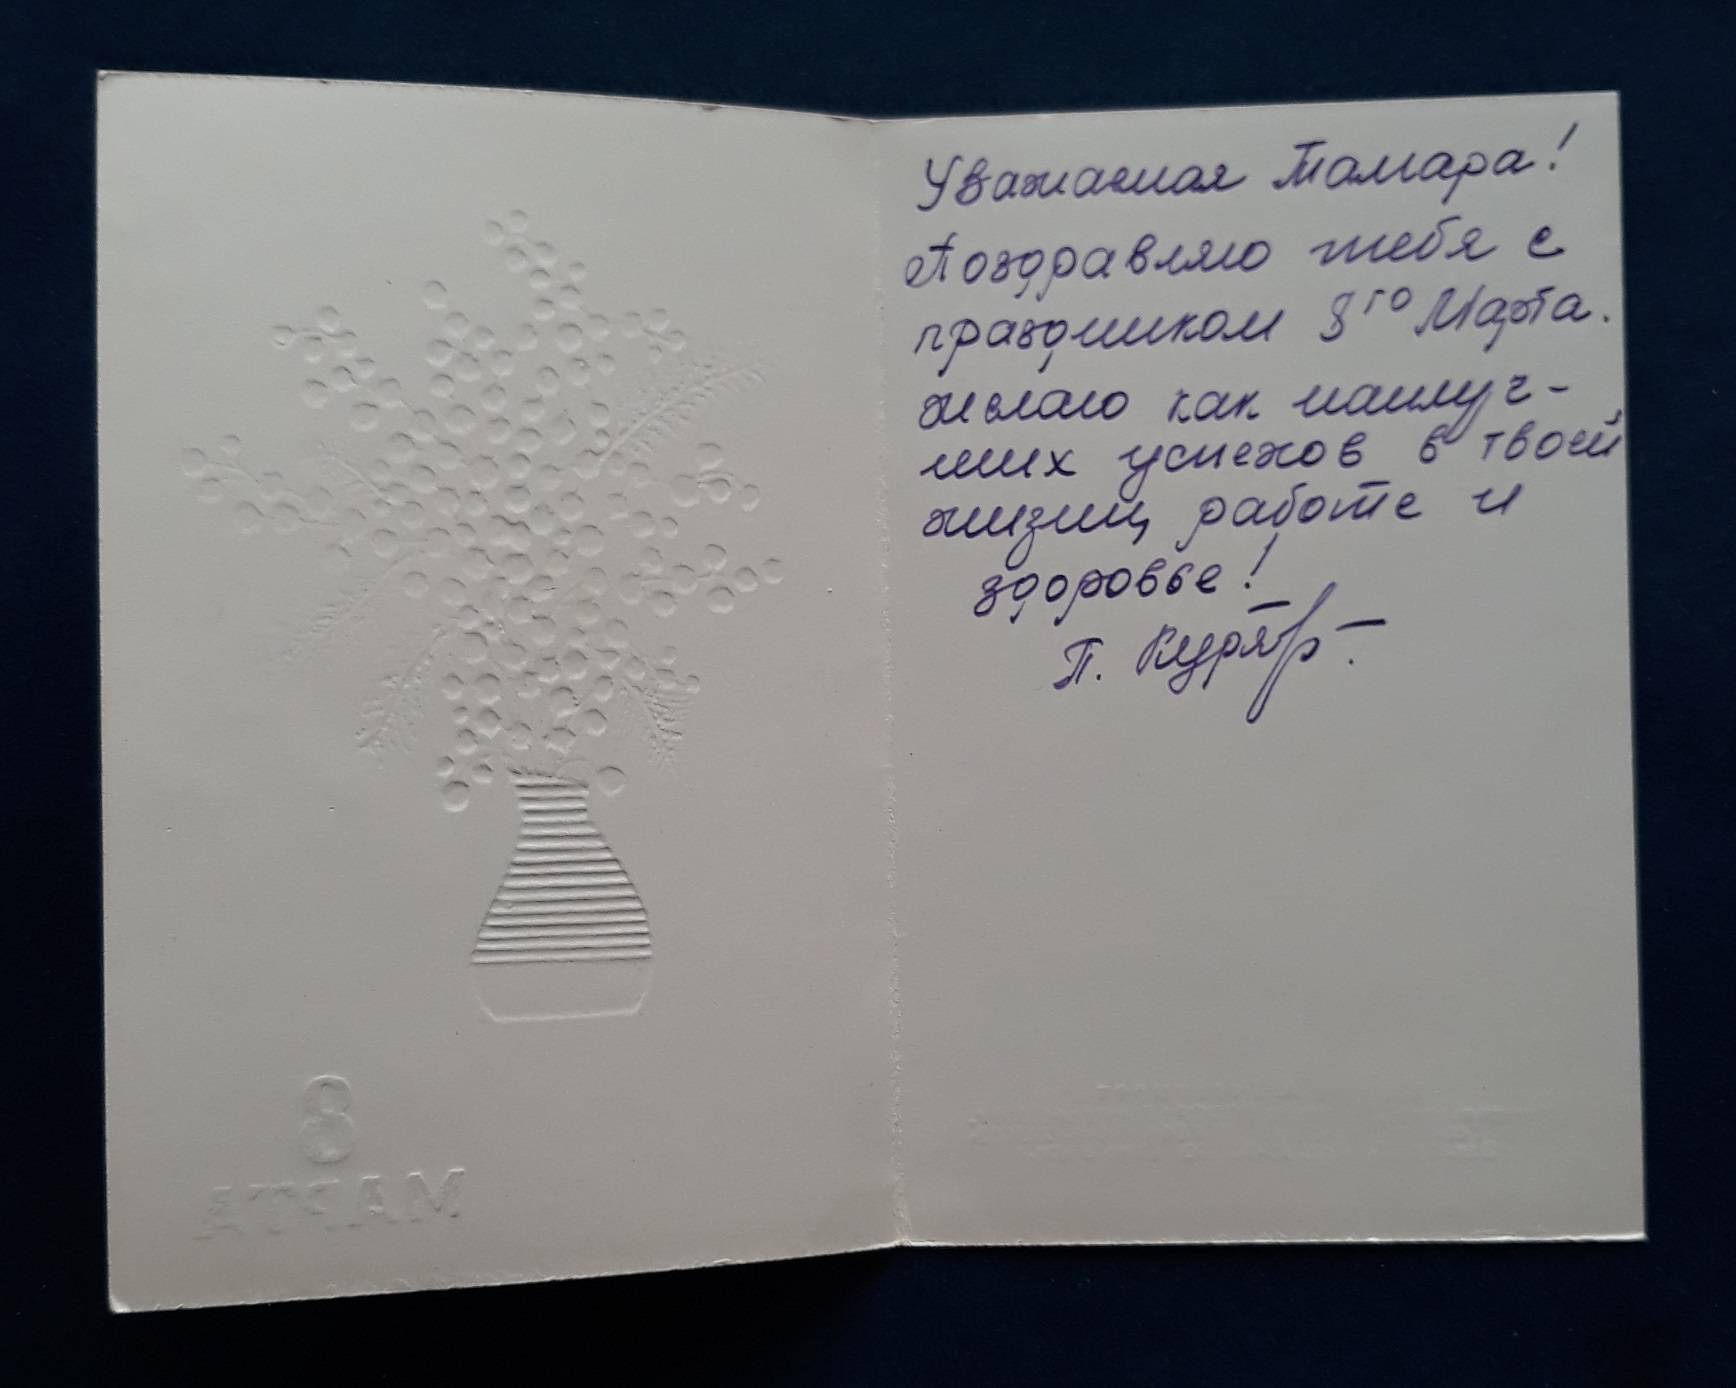 Уважаемая Тамара!
Поздравляю тебя с
праздником 8го Марта.
желаю как наилуч-
ших успехов в твоей
жизни, работе и
здоровье!
П.
8
МАРТА